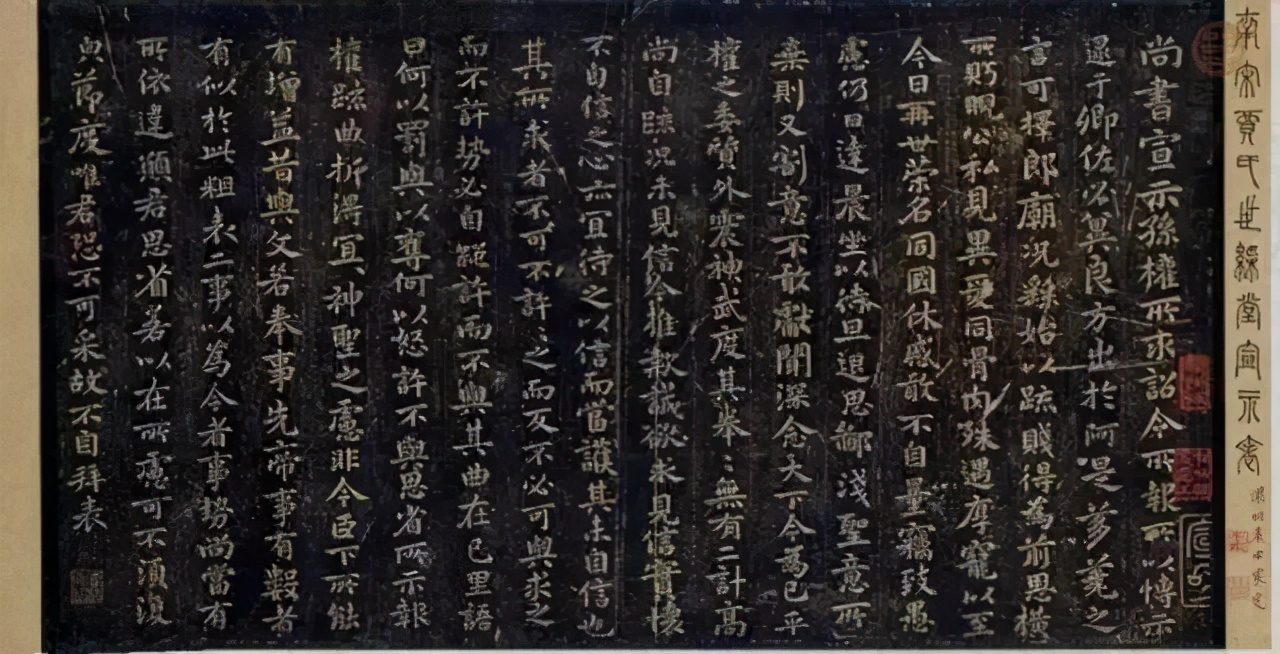 南宋賈氏世綵堂宣示表
尚書宣示孫權所求詔令所報所以博示
逮于卿佐必冀良方出於阿是芻蕘之
言可擇郎廟況繇始以疏賤得為前恩橫
所盻睨公私見異愛同骨肉殊遇厚寵以至
今日再世榮名同國休慼敢不自量竊致愚
慮仍日達晨坐以待旦退思鄙淺聖意所
棄則又割意不敢獻聞深念天下今為已平
權之委質外震神武度其拳〻無有二計高
尚自疏況未見信今推款誠欲求見信實懷
不自信之心亦宜待之以信而當護其未自信也
其所求者不可不許〻之而反不必可與求之
而不許勢必自絕許而不與其曲在己里語
曰何以罰與以奪何以怒許不與思省所示報
權疏曲折得宜〻神聖之慮非今臣下所能
有增益昔與文若奉事先帝事有數者
有似於此粗表二事以為今者事勢尚當有
所依違願君思省若以在所慮可不須復
與節度唯君恐不可采故不自拜表